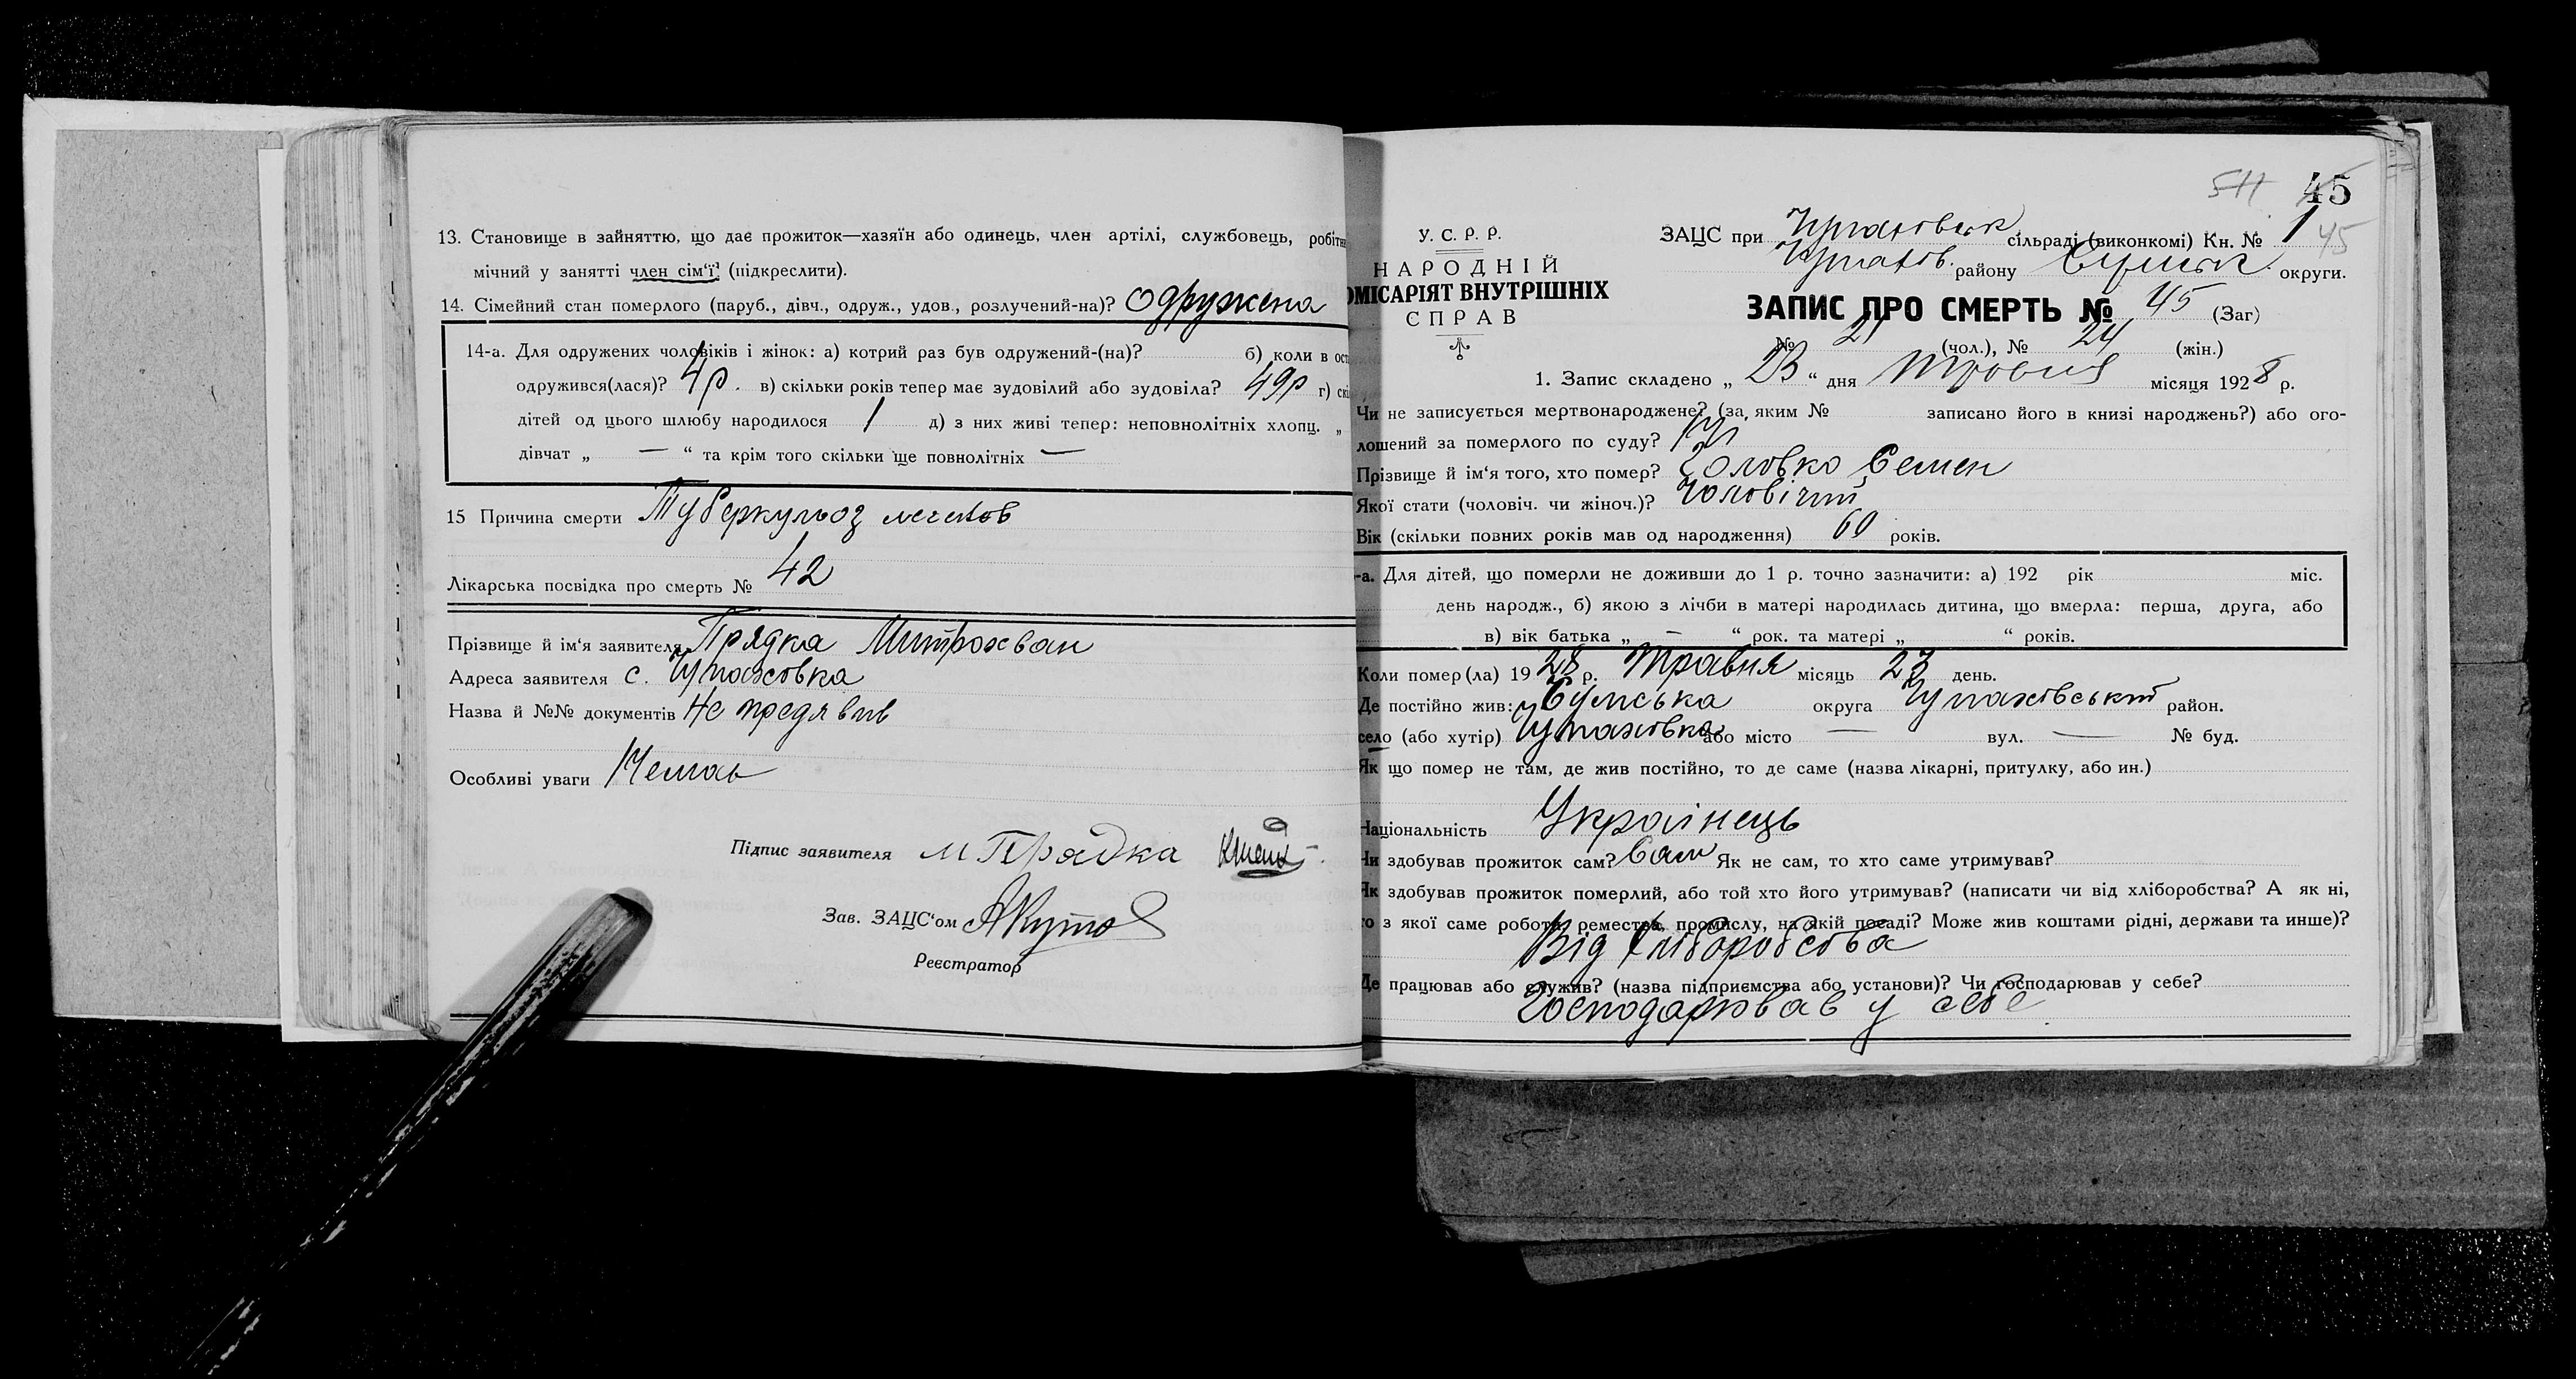 13. Становище в зайняттю, що дає прожиток—хазяїн або одинець, член артілі, службовець, робітн
мічний у занятті член сім'ї (підкреслити).
14. Сімейний стан померлого (паруб., дівч., одруж., удов., розлучений-на)? Одружена
14-а. Для одружених чоловіків і жінок: а) котрий раз був одружений-(на)? б) коли в ост
одружився(лася)? 4р. в) скільки років тепер має зудовілий або зудовіла? 49р г) скі
дітей од цього шлюбу народилося 1 д) з них живі тепер: неповнолітніх хлопц. „
дівчат „ — “ та крім того скільки ще повнолітніх —
15 Причина смерти Туберкульоз легенов
Лікарська посвідка про смерть № 42
Прізвище й ім'я заявителя Прядка Митрохван
Адреса заявителя с. Чупаховка
Назва й №№ документів Не предявив
Особливі уваги Немає
Підпис заявителя М Прядка
Зав. ЗАЦС'ом
Реєстратор
45
У. С. Р. Р.
НАРОДНІЙ
ОМІСАРІЯТ ВНУТРІШНІХ
СПРАВ
ЗАЦС при Чупаховськ. сільраді (виконкомі) Кн. № 1
45
Чупахов. району Сумськ. округи.
ЗАПИС ПРО СМЕРТЬ № 45 (Заг)
№ 21 (чол.), № 24 (жін.)
1. Запис складено „ 23 “ дня Травня місяця 1928 р.
Чи не записується мертвонароджене? (за яким № записано його в книзі народжень?) або ого-
лошений за померлого по суду? Ні
Прізвище й ім'я того, хто помер? Головко Семен
Якої стати (чоловіч. чи жіноч.)? Чоловічий
Вік (скільки повних років мав од народження) 60 років.
-а. Для дітей, що померли не доживши до 1 р. точно зазначити: а) 192 рік міс.
день народж., б) якою з лічби в матері народилась дитина, що вмерла: перша, друга, або
в) вік батька „ — “ рок. та матері „ “ років.
Коли помер(ла) 1928 р. Травня місяць 23 день.
Де постійно жив: Сумська округа Чупаховський район.
село (або хутір) Чупаховка або місто — вул. — № буд.
Як що помер не там, де жив постійно, то де саме (назва лікарні, притулку, або ин.)
Національність Українець
Чи здобував прожиток сам? Сам Як не сам, то хто саме утримував?
Як здобував прожиток померлий, або той хто його утримував? (написати чи від хліборобства? А як ні,
то з якої саме роботи, ремества, промислу, на якій посаді? Може жив коштами рідні, держави та инше)?
Від хліборобства
Де працював або служив? (назва підприємства або установи)? Чи господарював у себе?
Господарював у себе